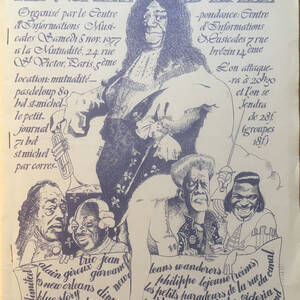 Organisé par le Centre
d'Informations Musi-
cales Samedi 5 nov. 1977
a la Mutualité, 24 rue
St Victor, Paris 5ème
location: mutualité-
pasdeloup 89
bd st-michel
le petit-
journal
71 bd
st michel
par corres-
pondance: Centre
d'Informations
Musicales 7 rue
brézin 14ème
L'on attaque-
ra à 20h30
et l'on se
fendra
de 28f
(groupes
18f)
trio jean
alain giroux garvanoff
new orleans
blue story
jeans wanderers
philippe lejeune (reims)
les petits ramoneurs de la rue du canal